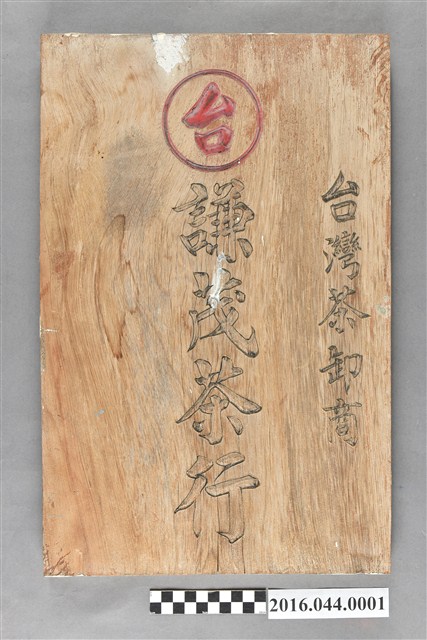 台灣茶卸商
台
謙茂茶行
2016.044.0001